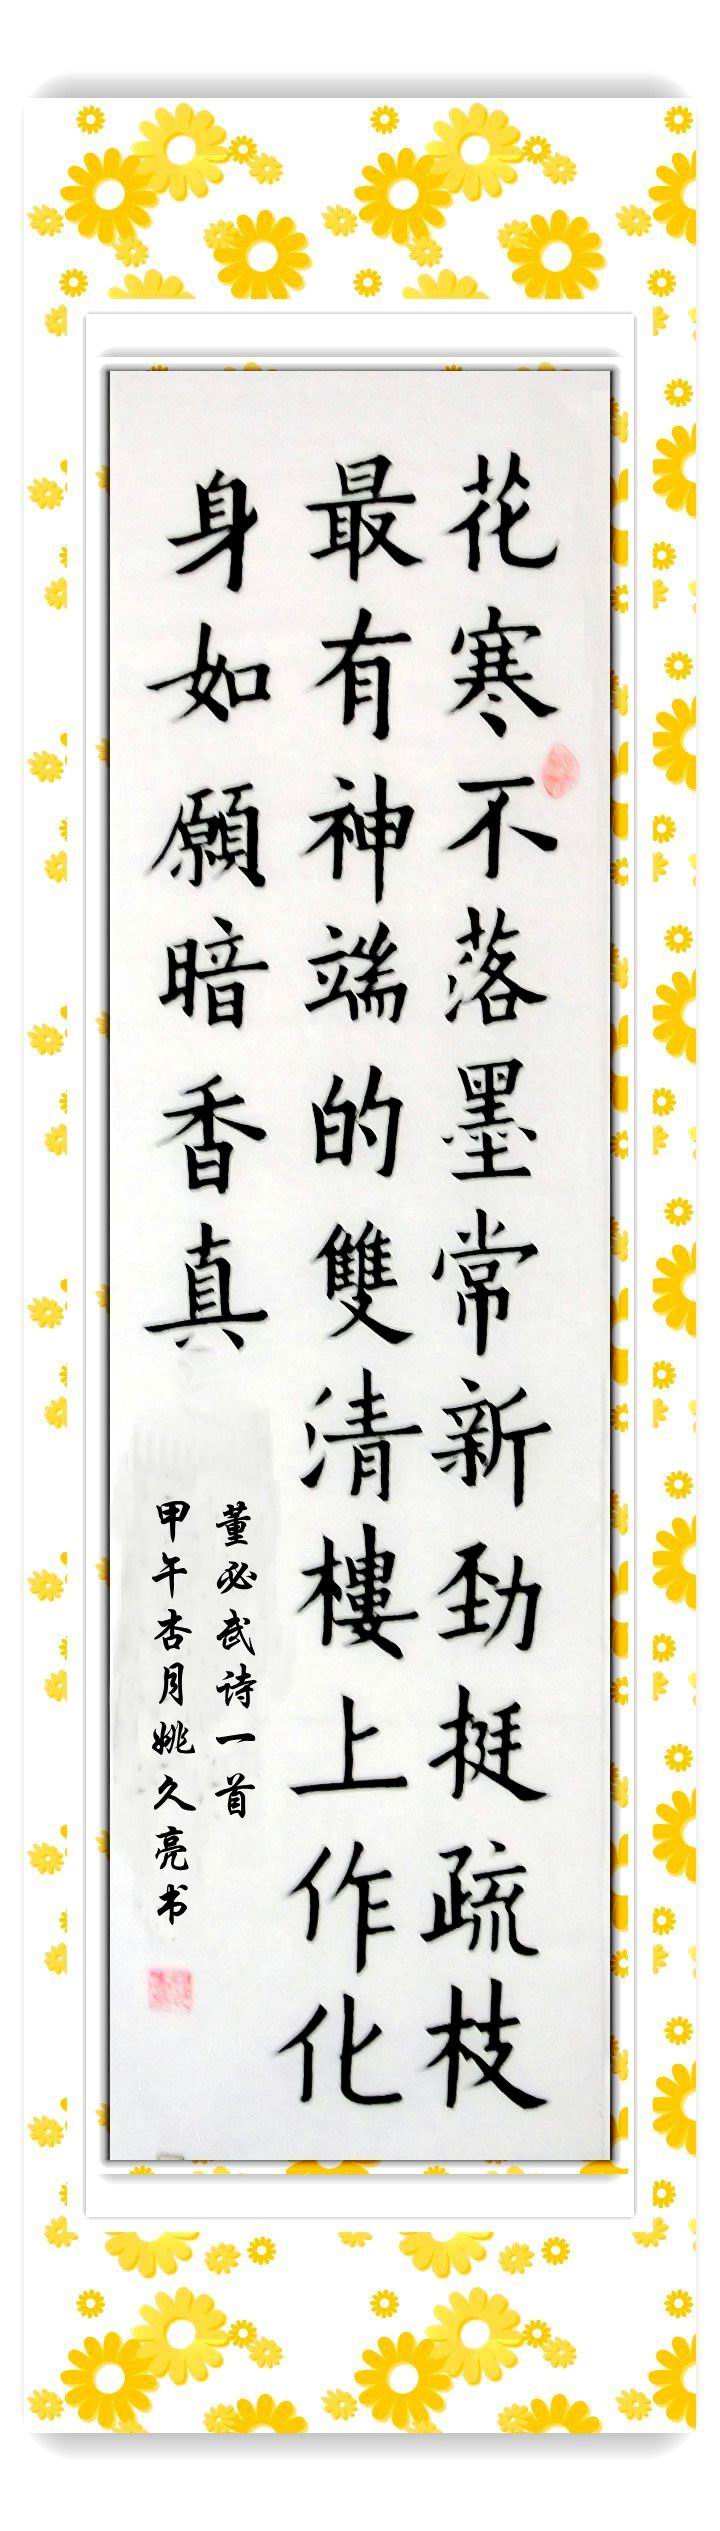 花寒不落墨常新勁挺疏枝
最有神端的雙清樓上作化
身如願暗香真
董必武诗一首
甲午杏月姚久亮书